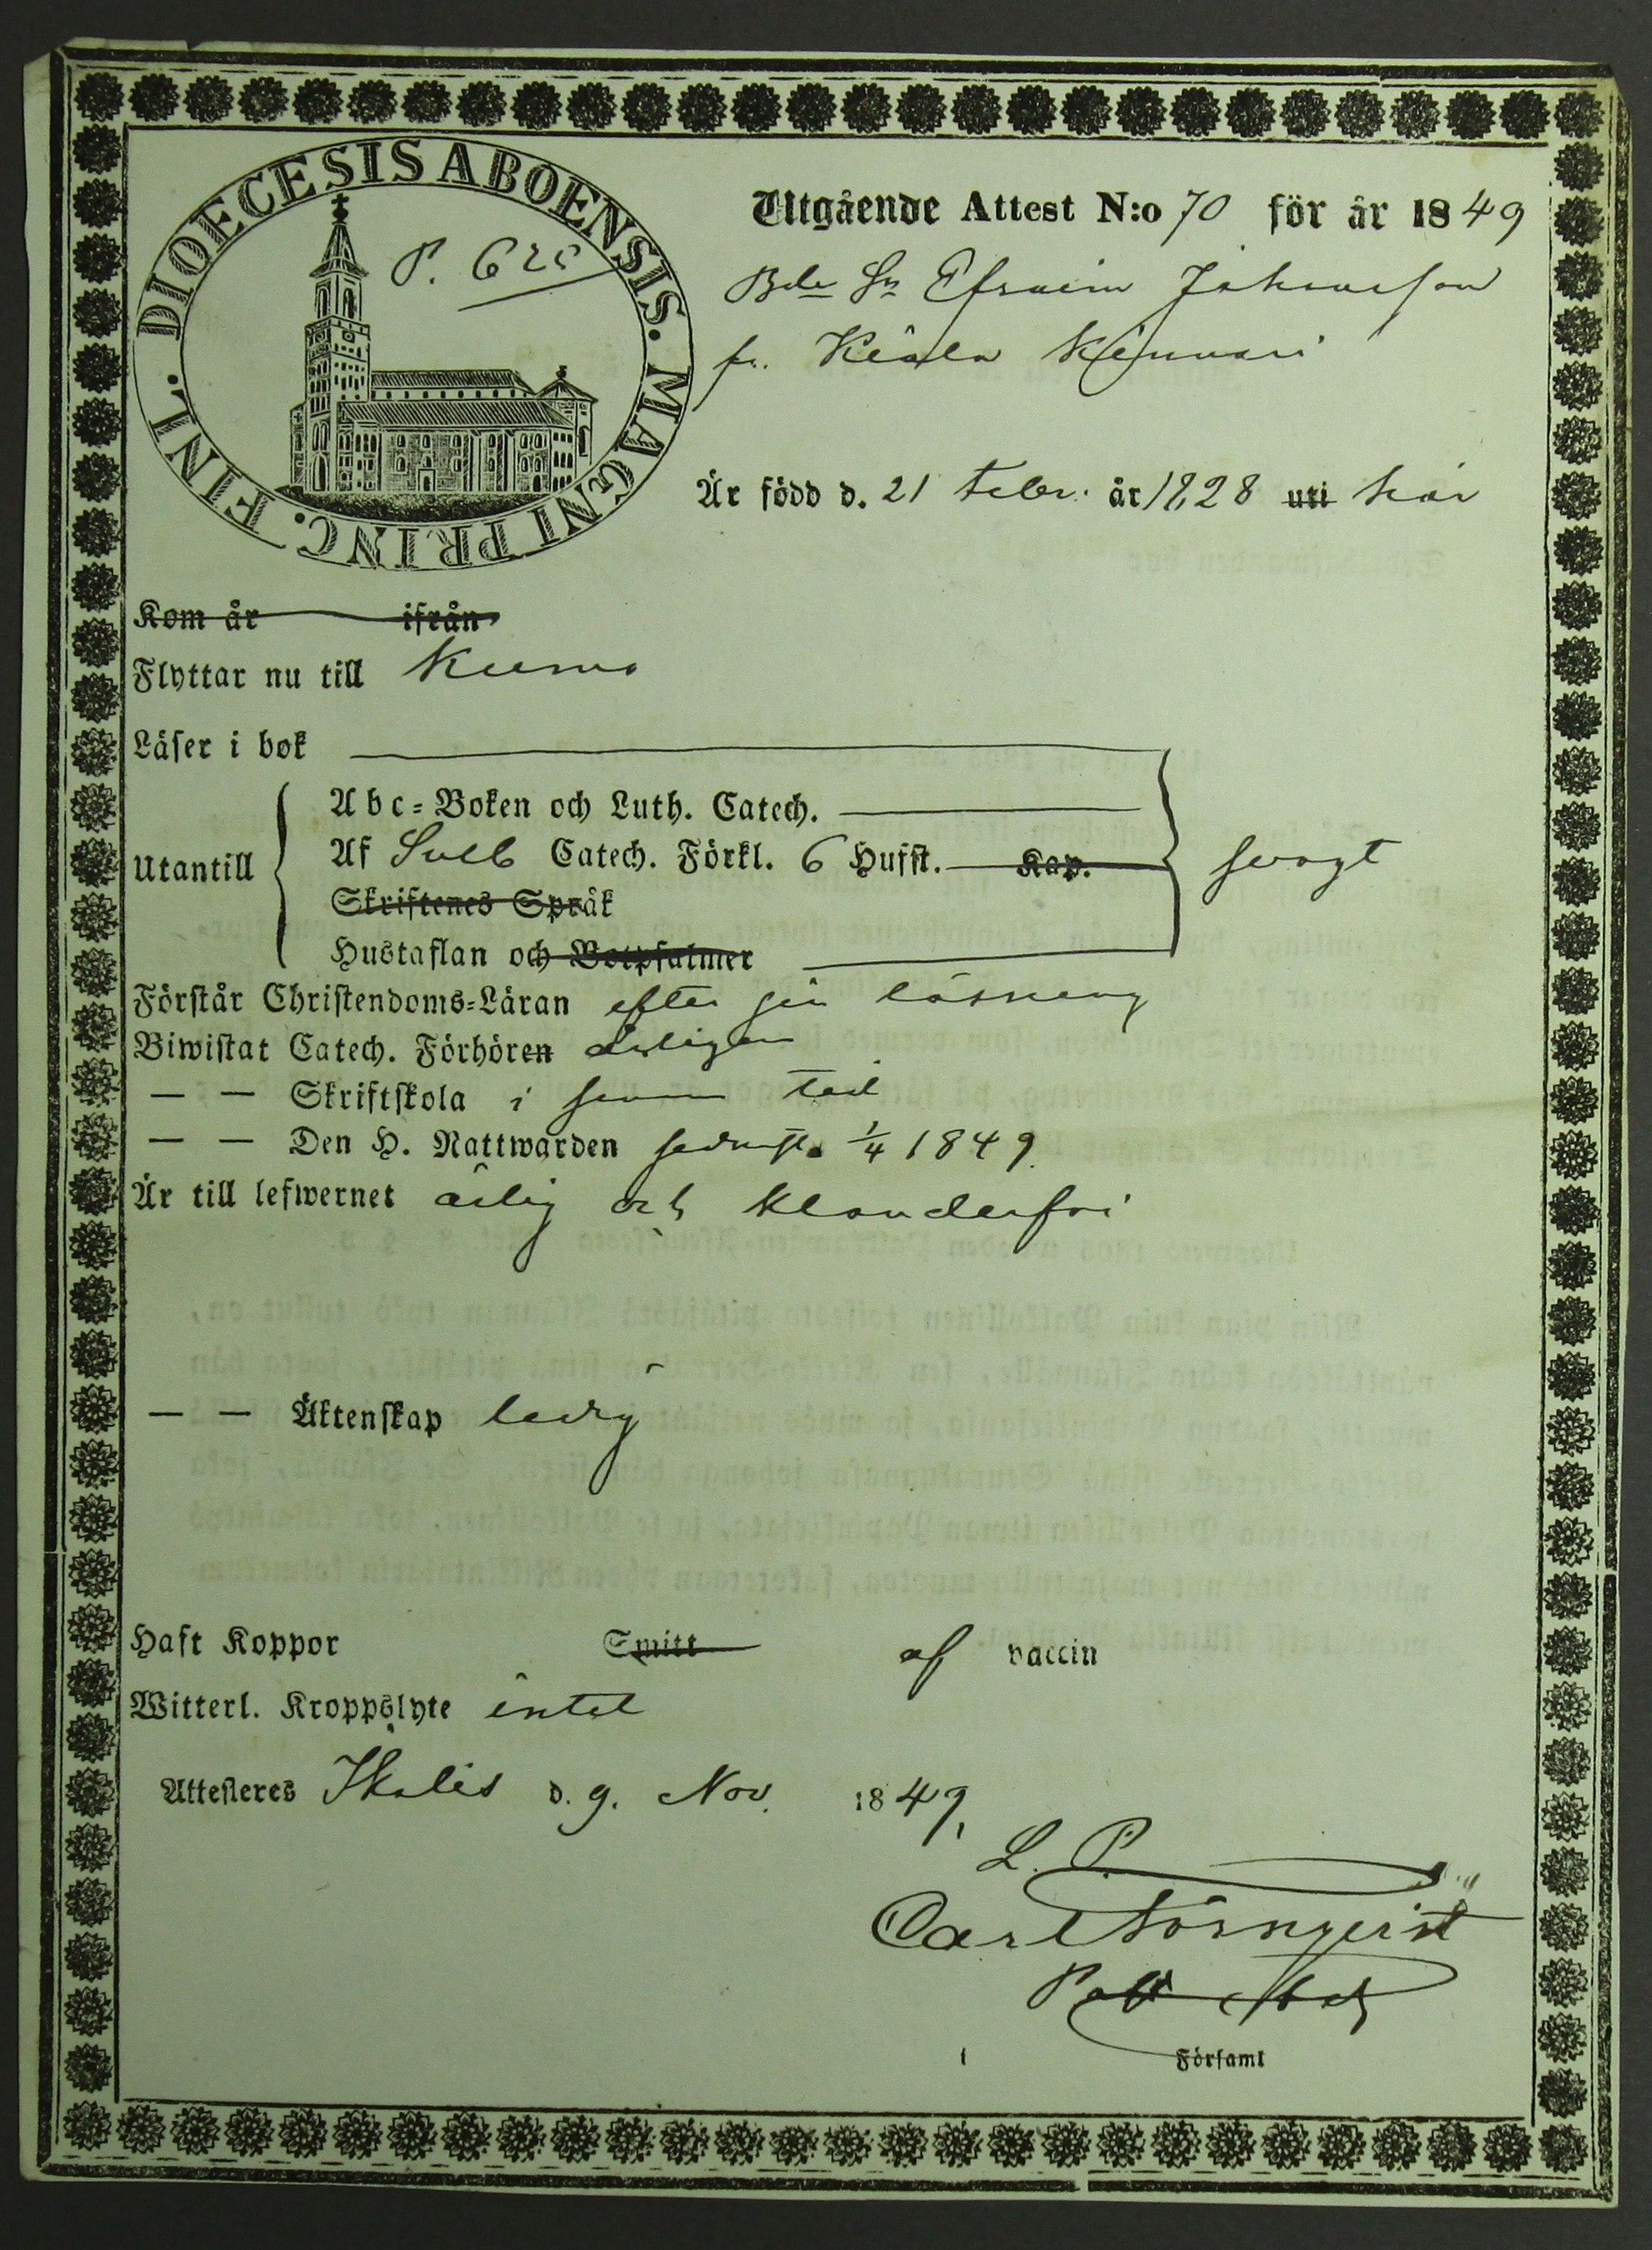 DIOECESIS ABOENSIS. MAGNI PRINC. FINL.
P. 625
Utgående Attest N:o 70 för år 1849
Bde Sn Efraim Johansson
fr. Kiala
Är född d. 21 Febr. år 1828 uti här
Kom år ifrån
Flyttar nu till Kumo
Läser i bok
Abc-Boken och Luth. Catech.
Utantill
Af Sveb Catech. Förkl. 6 Hufst. Kap.
svagt
Skriftenes Språk
Hustaflan och Botpsalmer
Förstår Christendoms-Läran efter sin läsning
Biwistat Catech. Förhören årligen
— — Skriftskola i sinom tid
— — Den H. Nattwarden sednast 1/4 1849.
Är till lefwernet ärlig och klanderfri
— — Äktenskap ledig
Haft Koppor Smitt af vaccin
Witterl. Kroppslyte intet
Attesteres Ikalis d. 9. Nov. 1849.
L. P.
Carl
Församl